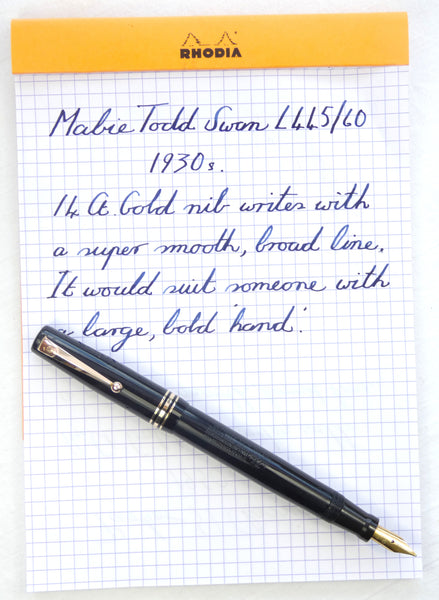 RHODIA
Mabie Todd Swan L445/60
1930s.
14 ct. Gold nib writes with
a super smooth, broad line.
It would suit someone with
a large, bold 'hand'.